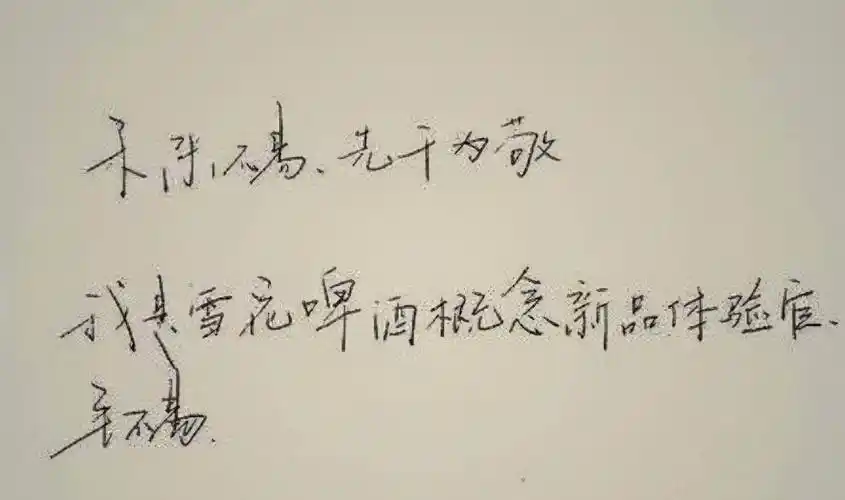 不易、先干为敬
我是雪花啤酒概念新品体验官、
毛不易.